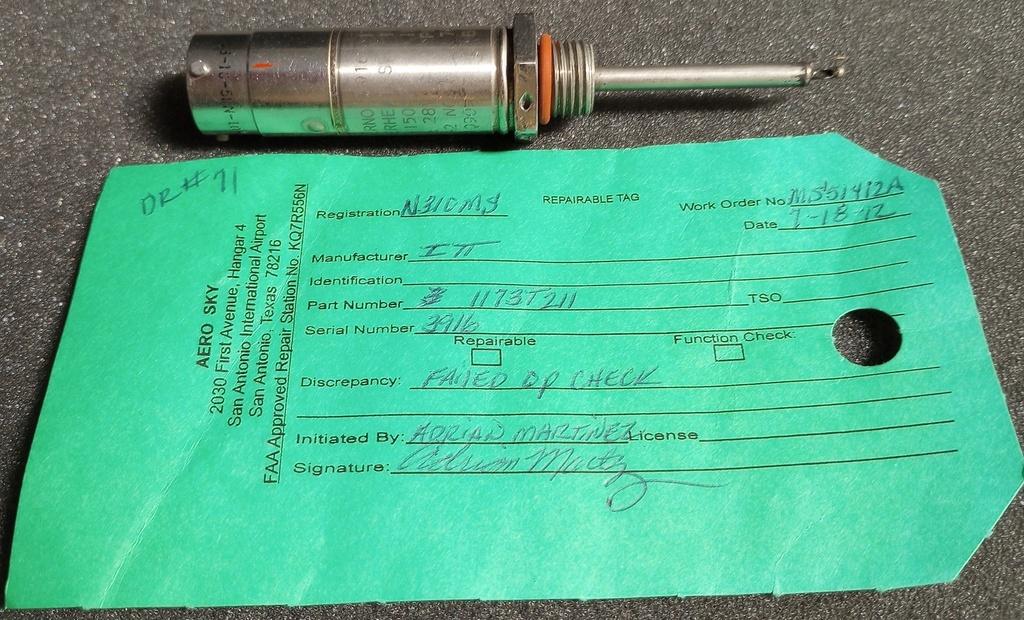 DR# 71
AERO SKY
2030 First Avenue, Hangar 4
San Antonio International Airport
San Antonio, Texas 78216
FAA Approved Repair Station No. KQ7R556N
REPAIRABLE TAG
Registration N310MS
Work Order No. MS51412A
Date 7-18-12
Manufacturer ITT
Identification
Part Number 1173T211
TSO
Serial Number 3916
Repairable
Function Check:
Discrepancy: FAILED OP CHECK
Initiated By: ADRIAN MARTINEZ License
Signature: